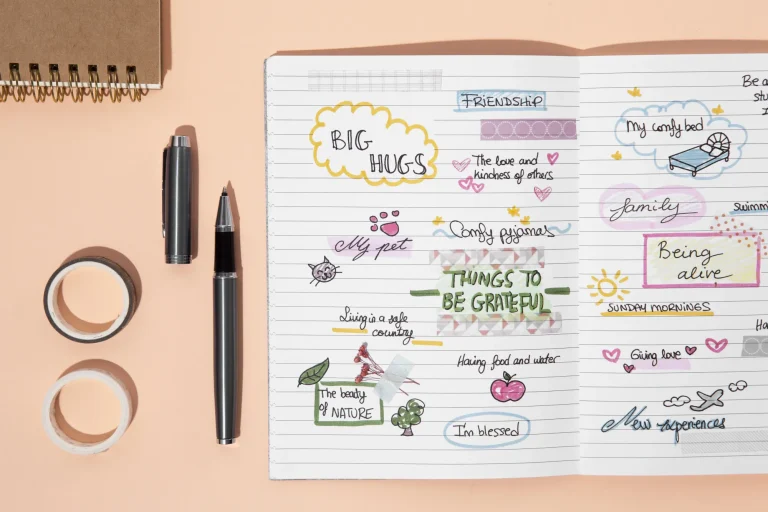 FRIENDSHIP
BIG
HUGS
The love and
kindness of others
My pet
Comfy pyjamas
THINGS TO
BE GRATEFUL
Living is a safe
country
Having food and water
The beaty
of NATURE
I'm blessed
Be
My comfy bed
family
Being
alive
SUNDAY MORNINGS
Giving love
New experiences